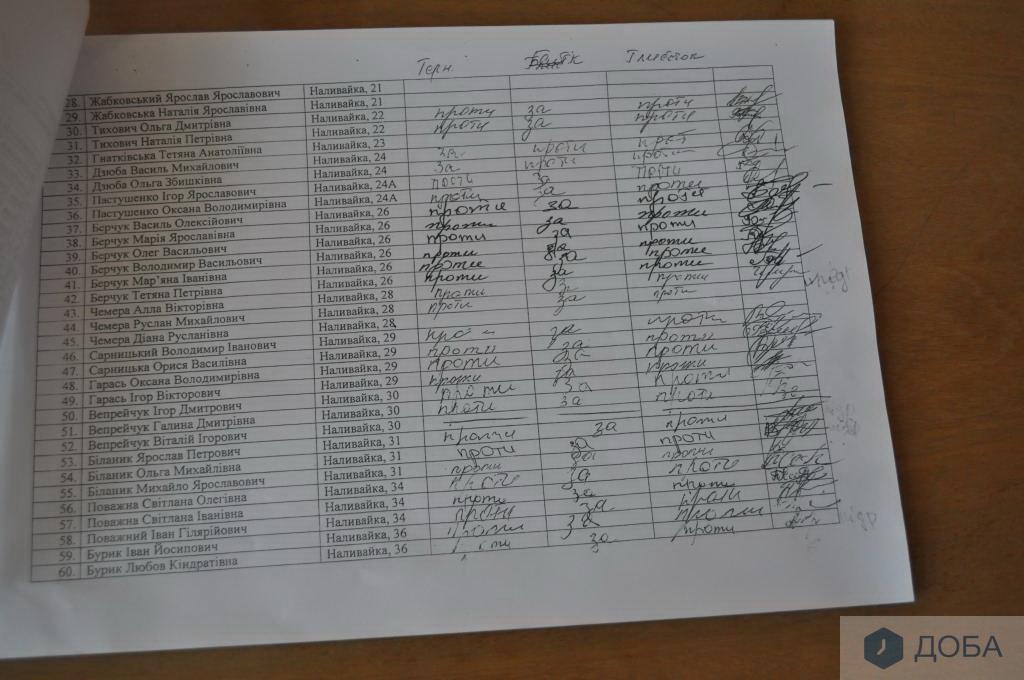 Терн. Балтік Тлисток
28. Жабковський Ярослав Ярославович Наливайка, 21
29. Жабковська Наталія Ярославівна Наливайка, 21
30. Тихович Ольга Дмитрівна Наливайка, 22 проти за проти
31. Тихович Наталія Петрівна Наливайка, 22 проти за проти
32. Гнатківська Тетяна Анатоліївна Наливайка, 23
33. Дзюба Василь Михайлович Наливайка, 24 за проти
34. Дзюба Ольга Збишківна Наливайка, 24 за проти
35. Пастушенко Ігор Ярославович Наливайка, 24А за
36. Пастушенко Оксана Володимирівна Наливайка, 24А проти за проти
37. Берчук Василь Олексійович Наливайка, 26 проти за проти
38. Берчук Марія Ярославівна Наливайка, 26 проти за проти
39. Берчук Олег Васильович Наливайка, 26 проти за проти
40. Берчук Володимир Васильович Наливайка, 26 проти за проти
41. Берчук Мар'яна Іванівна Наливайка, 26 проти за проти
42. Берчук Тетяна Петрівна Наливайка, 26 проти за проти
43. Чемера Алла Вікторівна Наливайка, 28 проти за проти
44. Чемера Руслан Михайлович Наливайка, 28 проти за проти
45. Чемера Діана Русланівна Наливайка, 28
46. Сарницький Володимир Іванович Наливайка, 29 за проти
47. Сарницька Орися Василівна Наливайка, 29 проти за проти
48. Гарась Оксана Володимирівна Наливайка, 29 проти за проти
49. Гарась Ігор Вікторович Наливайка, 29 проти за проти
50. Вепрейчук Ігор Дмитрович Наливайка, 30 проти за проти
51. Вепрейчук Галина Дмитрівна Наливайка, 30 проти за проти
52. Вепрейчук Віталій Ігорович Наливайка, 30
53. Біланик Ярослав Петрович Наливайка, 31 проти за проти
54. Біланик Ольга Михайлівна Наливайка, 31 проти за проти
55. Біланик Михайло Ярославович Наливайка, 31 проти за проти
56. Поважна Світлана Олегівна Наливайка, 34 проти за проти
57. Поважна Світлана Іванівна Наливайка, 34 проти за проти
58. Поважний Іван Гілярійович Наливайка, 34 проти за проти
59. Бурик Іван Йосипович Наливайка, 36 проти за проти
60. Бурик Любов Кіндратівна Наливайка, 36 за проти
ДОБА